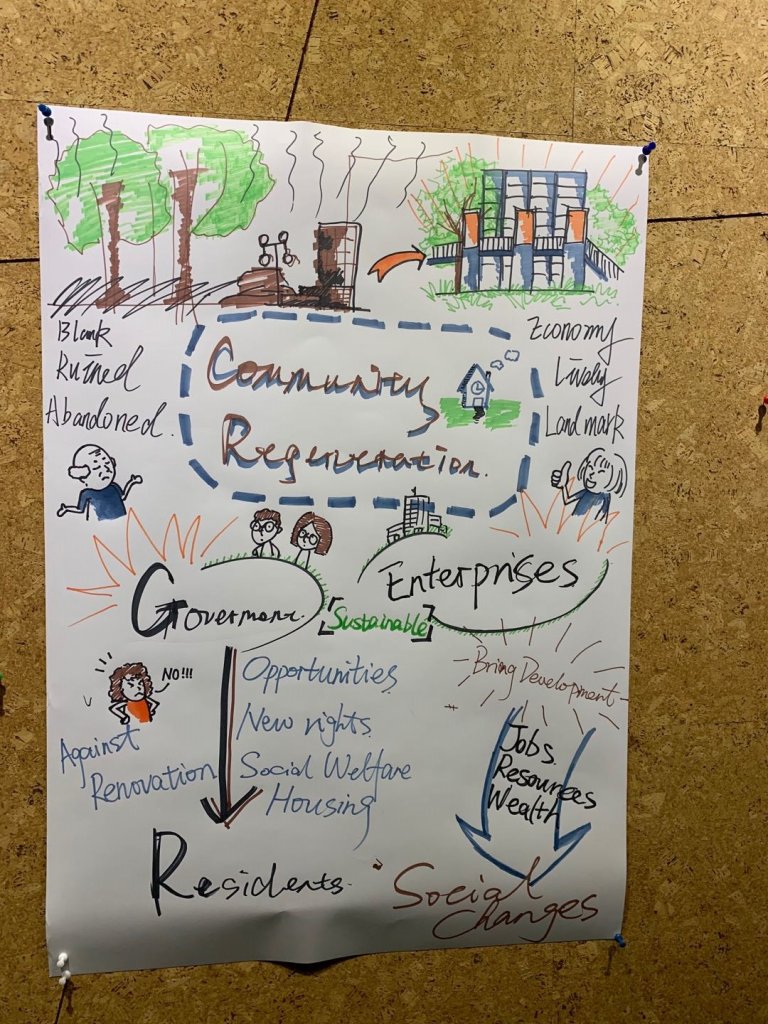 Blank
Ruined
Abandoned.
Economy
Lively
Landmark
Community
Regeneration.
Government.
Enterprises
[Sustainable]
NO!!!
Against
Renovation
Opportunities
New rights
Social Welfare
Housing
Residents.
Bring Development
Jobs
Resources
Wealth
Social
Changes